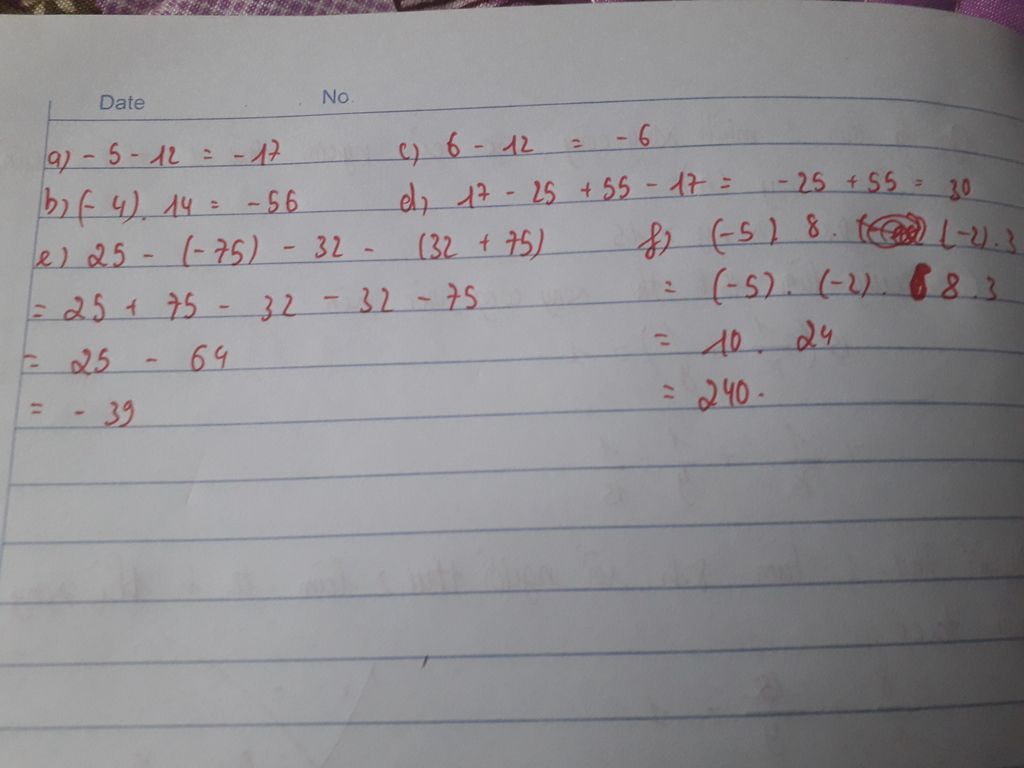 Date No.
a) - 5 - 12 = - 17 c) 6 - 12 = - 6
b) (- 4). 14 = - 56 d) 17 - 25 + 55 - 17 = - 25 + 55 = 30
e) 25 - (-75) - 32 - (32 + 75) f) (-5) 8. (-2).3
= 25 + 75 - 32 - 32 - 75 = (-5). (-2). 8.3
= 25 - 64 = 10. 24
= - 39 = 240.